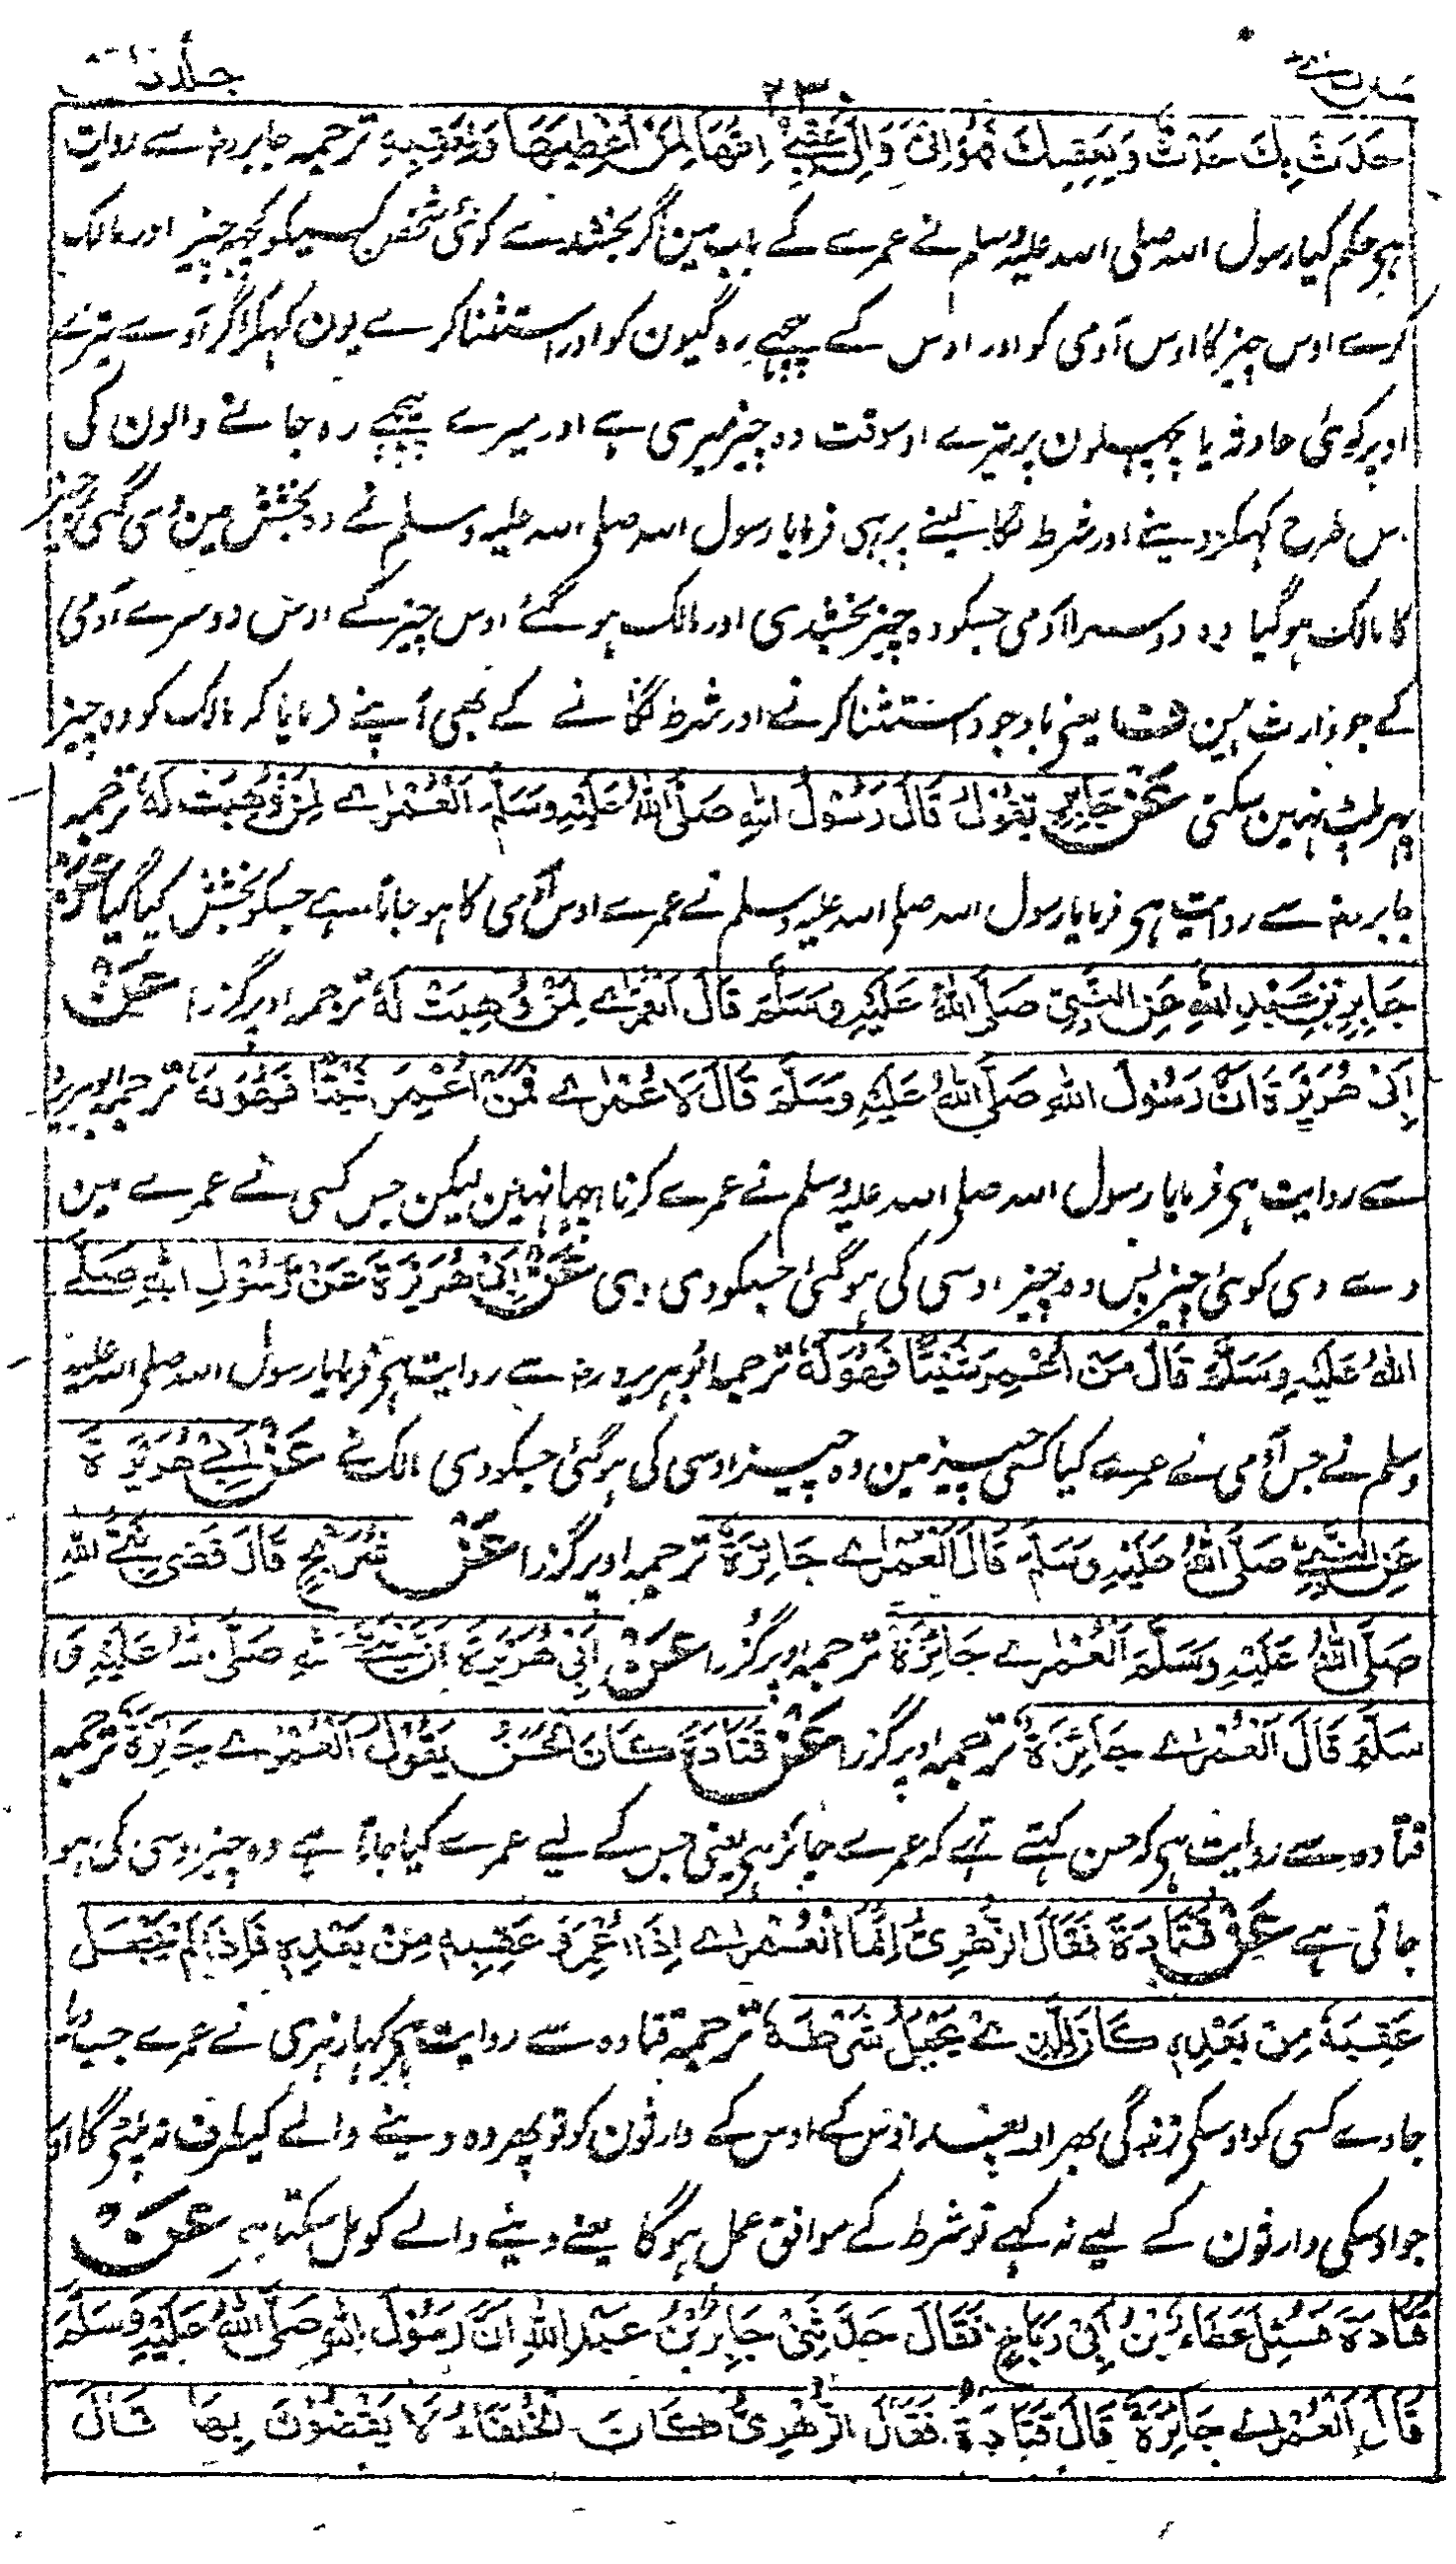 جلد
۲۳۰
حَدَثَ بِكَ حَدَثٌ وَبِعَقِبِكَ فَهُوَ اِلَيَّ وَاِلٰى عَقِبِيْ اِنَّهَا لِمَنْ اُعْطِيَهَا وَلِعَقِبِهٖ ترجمہ جابر رضہ سے روایت
ہی حکم کیا رسول اللہ صلی اللہ علیہ وسلم نے عمرے کے باب مین اگر بخشدے کوئی شخص کسیکو کچھ چیز اور مالک
کرے اوس چیز کا اوس آدمی کو اور اوس کے پیچھے رہ گیون کو اور استثنا کرے یون کہکر اگر آوے تیرے
اوپر کوئی حادثہ یا پچھلون پر تیرے اوسوقت وہ چیز میری ہے اور میرے پیچھے رہ جانے والون کی
اس طرح کہکر دینے اور شرط لگا لینے پر ہی فرمایا رسول اللہ صلی اللہ علیہ وسلم نے وہ بخشش مین دی گئی چیز
کا مالک ہو گیا وہ دوسرا آدمی جسکو وہ چیز بخشدی اور مالک ہو گئے اوس چیز کے اوس دوسرے آدمی
کے جو وارث ہین یعنی باوجود استثنا کرنے اور شرط لگانے کے بھی آپنے فرمایا کہ مالک کو وہ چیز
پھر پلٹ نہین سکتی عَنْ جَابِرٍ يَقُوْلُ قَالَ رَسُوْلُ اللهِ صَلَّى اللهُ عَلَيْهِ وَسَلَّمَ اَلْعُمْرٰے لِمَنْ وُهِبَتْ لَهٗ ترجمہ
جابر رضہ سے روایت ہی فرمایا رسول اللہ صلی اللہ علیہ وسلم نے عمرے اوس آدمی کا ہو جاتا ہے جسکو بخشش کیا گیا عَنْ
جَابِرِ بْنِ عَبْدِ اللهِ عَنِ النَّبِيِّ صَلَّى اللهُ عَلَيْهِ وَسَلَّمَ قَالَ الْعُمْرٰے لِمَنْ وُهِبَتْ لَهٗ ترجمہ اوپر گزرا عَنْ
اَبِيْ هُرَيْرَةَ اَنَّ رَسُوْلَ اللهِ صَلَّى اللهُ عَلَيْهِ وَسَلَّمَ قَالَ لَا عُمْرٰے فَمَنْ اُعْمِرَ شَيْئًا فَهُوَ لَهٗ ترجمہ ابو ہریرہ
سے روایت ہی فرمایا رسول اللہ صلی اللہ علیہ وسلم نے عمرے کرنا اچھا نہین لیکن جس کسی نے عمرے مین
دے دی کوئی چیز پس وہ چیز اوسی کی ہو گئی جسکو دی دی عَنْ اَبِيْ هُرَيْرَةَ عَنْ رَسُوْلِ اللهِ صَلَّى
اللهُ عَلَيْهِ وَسَلَّمَ قَالَ مَنْ اُعْمِرَ شَيْئًا فَهُوَ لَهٗ ترجمہ ابو ہریرہ رضہ سے روایت ہی فرمایا رسول اللہ صلی اللہ علیہ
وسلم نے جس آدمی نے عمرے کیا کسی چیز مین وہ چیز اوسی کی ہو گئی جسکو دی مالک نے عَنْ اَبِيْ هُرَيْرَةَ
عَنِ النَّبِيِّ صَلَّى اللهُ عَلَيْهِ وَسَلَّمَ قَالَ الْعُمْرٰے جَائِزَةٌ ترجمہ اوپر گزرا عَنْ شُرَيْحٍ قَالَ قَضٰى نَبِيُّ اللهِ
صَلَّى اللهُ عَلَيْهِ وَسَلَّمَ اَلْعُمْرٰے جَائِزَةٌ ترجمہ اوپر گزرا عَنْ اَبِيْ هُرَيْرَةَ اَنَّ نَبِيَّ اللهِ صَلَّى اللهُ عَلَيْهِ وَ
سَلَّمَ قَالَ اَلْعُمْرٰے جَائِزَةٌ ترجمہ اوپر گزرا عَنْ قَتَادَةَ كَانَ الْحَسَنُ يَقُوْلُ الْعُمْرٰے جَائِزَةٌ ترجمہ
قتادہ سے روایت ہی کہ حسن کہتے تھے کہ عمرے جائز ہی یعنی جس کے لیے عمرے کیا جاتا ہے وہ چیز اوسی کی ہو
جاتی ہے عَنْ قَتَادَةَ فَقَالَ الزُّهْرِيُّ اِنَّمَا الْعُمْرٰے اِذَا اُعْمِرَ وَ عَقِبِهٖ مِنْ بَعْدِهٖ فَاِذَا لَمْ يَجْعَلْ
عَقِبَهٗ مِنْ بَعْدِهٖ كَانَ لِلَّذِىْ يَجْعَلُ شَرْطَهٗ ترجمہ قتادہ سے روایت ہی کہا زہری نے عمرے جب کیا
جاوے کسی کو اوسکی زندگی بھر اور بعد اوس کے اوس کے وارثون کو تو پھر وہ دینے والے کیطرف نہ پلٹے گا اور
جو اوسکی وارثون کے لیے نہ کہے تو شرط کے موافق عمل ہو گا یعنے دینے والے کو مل سکتا ہی عَنْ
قَتَادَةَ فَسُئِلَ عَطَاءُ بْنُ اَبِيْ رَبَاحٍ فَقَالَ حَدَّثَنِيْ جَابِرُ بْنُ عَبْدِ اللهِ اَنَّ رَسُوْلَ اللهِ صَلَّى اللهُ عَلَيْهِ وَسَلَّمَ
قَالَ الْعُمْرٰے جَائِزَةٌ قَالَ قَتَادَةُ فَقَالَ الزُّهْرِيُّ كَانَ الْخُلَفَاءُ لَا يَقْضُوْنَ بِهَا قَالَ